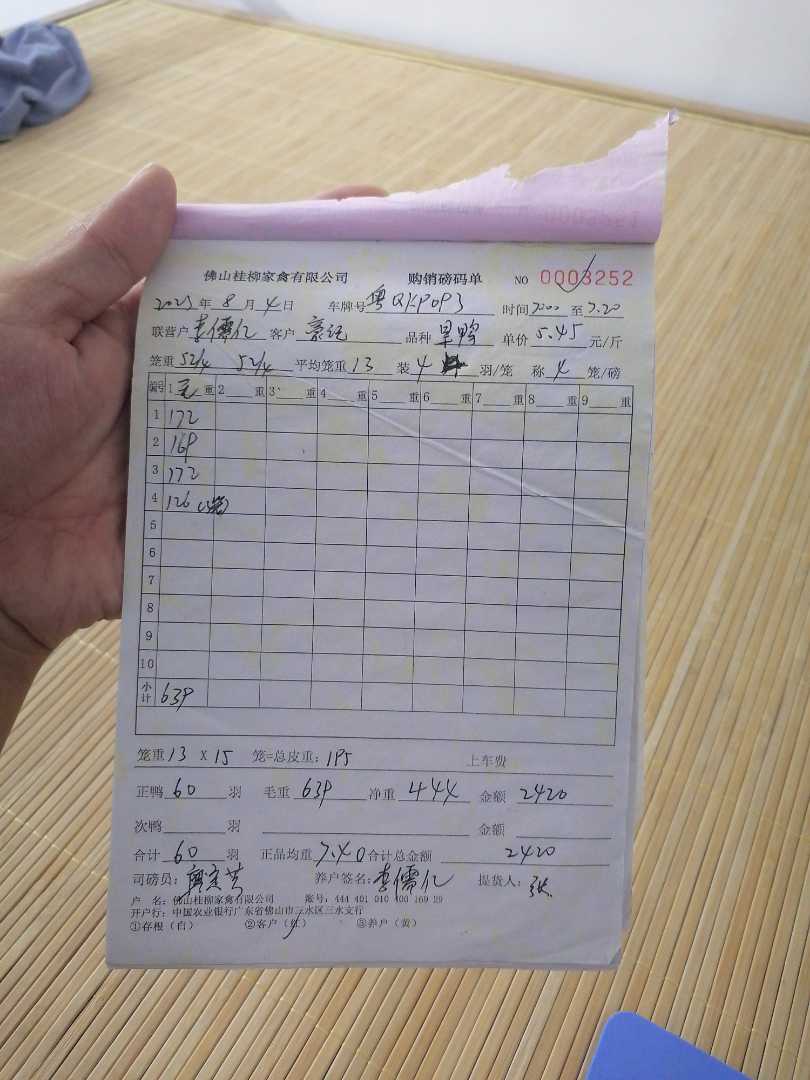 佛山桂柳家禽有限公司 购销磅码单 NO 0003252
2025年8月4日 车牌号 粤QKP0P3 时间 7:00 至 7.20
联营户 李儒亿 客户 品种 旱鸭 单价 5.45 元/斤
笼重 52/4 52/4 平均笼重 13 装 4 羽/笼 称 4 笼/磅
编号 1 毛 重 2 重 3 重 4 重 5 重 6 重 7 重 8 重 9 重
1 172
2 169
3 172
4 126 (3笼)
5
6
7
8
9
10
小计 639
笼重 13 X 15 笼=总皮重: 195 上车费
正鸭 60 羽 毛重 639 净重 444 金额 2420
次鸭 羽 金额
合计 60 羽 正品均重 7.40 合计总金额 2420
司磅员: 养户签名: 李儒亿 提货人: 张
户 名: 佛山桂柳家禽有限公司 账号: 444 401 010 400 169 29
开户行: 中国农业银行广东省佛山市三水区三水支行
①存根(白) ②客户(红) ③养户(黄)